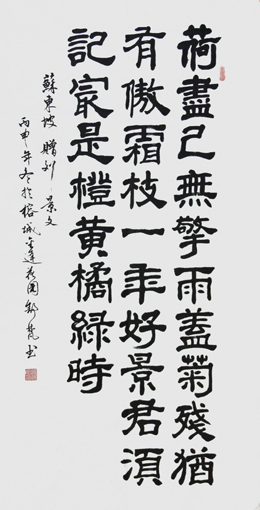 荷盡已無擎雨蓋菊殘猶
有傲霜枝一年好景君須
記最是橙黃橘綠時
蘇東坡 贈刘景文
丙申年冬於榕城蓮花園书